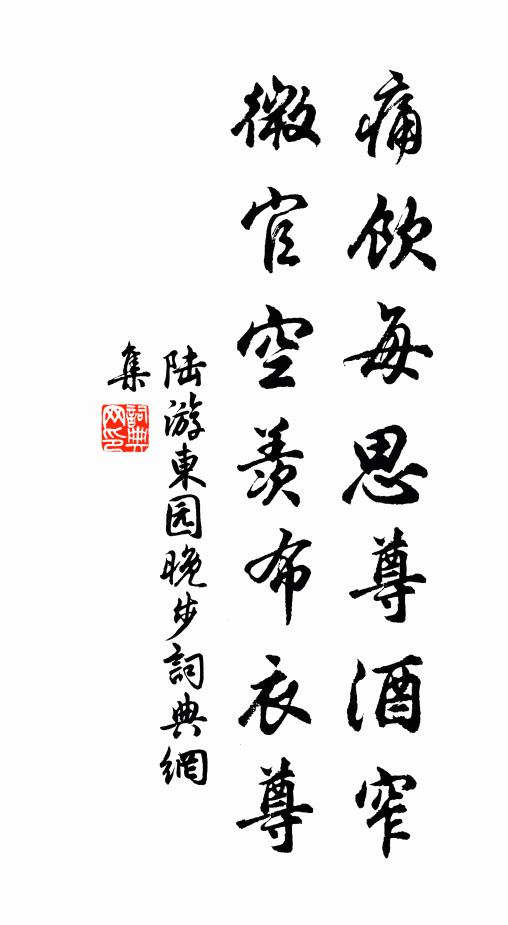 痛飲每思尊酒窄
微官空羨布衣尊
陆游東园晚步詞典網
集
詞典
网印